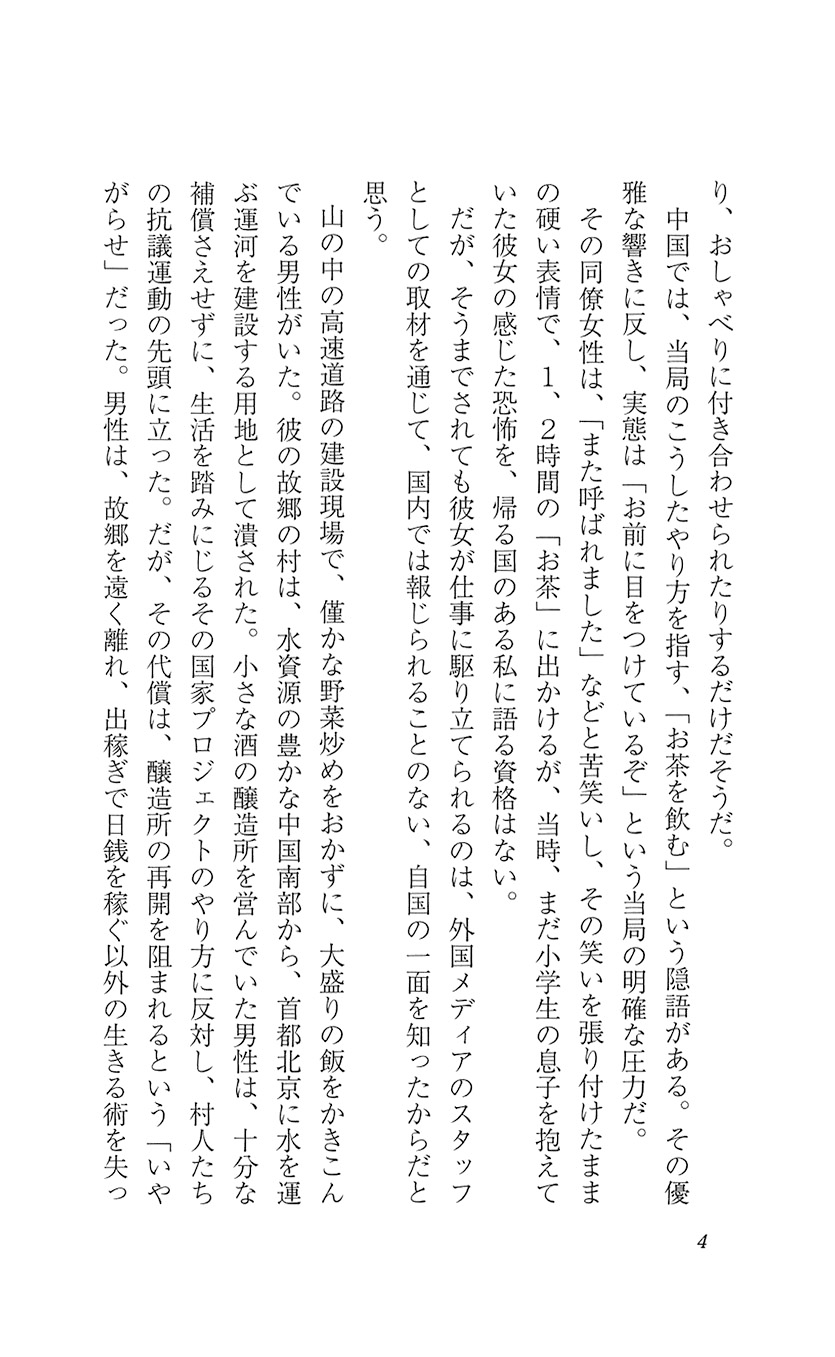 り、おしゃべりに付き合わせられたりするだけだそうだ。
　中国では、当局のこうしたやり方を指す、「お茶を飲む」という隠語がある。その優
雅な響きに反し、実態は「お前に目をつけているぞ」という当局の明確な圧力だ。
　その同僚女性は、「また呼ばれました」などと苦笑いし、その笑いを張り付けたまま
の硬い表情で、１、２時間の「お茶」に出かけるが、当時、まだ小学生の息子を抱えて
いた彼女の感じた恐怖を、帰る国のある私に語る資格はない。
　だが、そうまでされても彼女が仕事に駆り立てられるのは、外国メディアのスタッフ
としての取材を通じて、国内では報じられることのない、自国の一面を知ったからだと
思う。
　山の中の高速道路の建設現場で、僅かな野菜炒めをおかずに、大盛りの飯をかきこん
でいる男性がいた。彼の故郷の村は、水資源の豊かな中国南部から、首都北京に水を運
ぶ運河を建設する用地として潰された。小さな酒の醸造所を営んでいた男性は、十分な
補償さえせずに、生活を踏みにじるその国家プロジェクトのやり方に反対し、村人たち
の抗議運動の先頭に立った。だが、その代償は、醸造所の再開を阻まれるという「いや
がらせ」だった。男性は、故郷を遠く離れ、出稼ぎで日銭を稼ぐ以外の生きる術を失っ
4